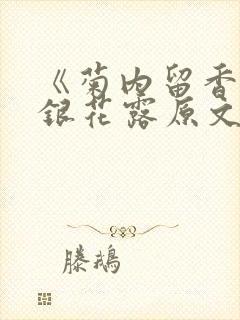 《菊内留香
銀花露原文
滕鵝